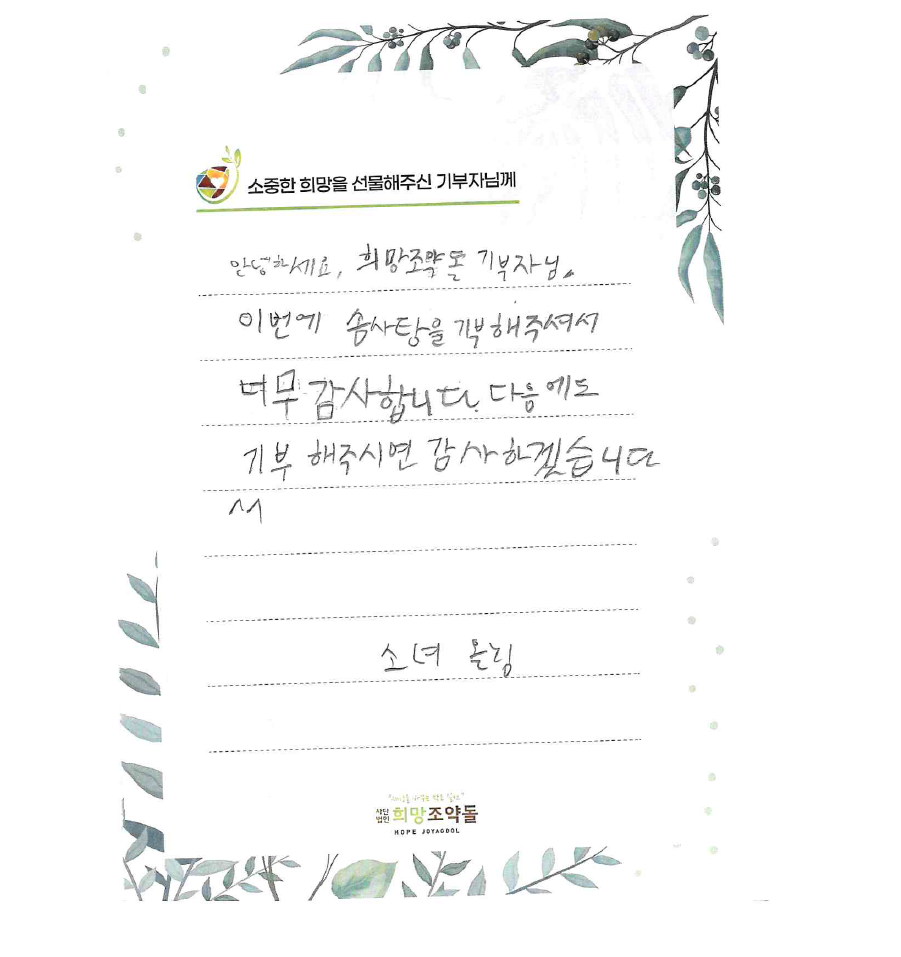 소중한 희망을 선물해주신 기부자님께
안녕하세요, 희망조약돌 기부자님.
이번에 솜사탕을 기부해주셔서
너무 감사합니다. 다음에도
기부 해주시면 감사하겠습니다
서
소녀 올림
사단법인 희망조약돌
HOPE JOYAGDOL